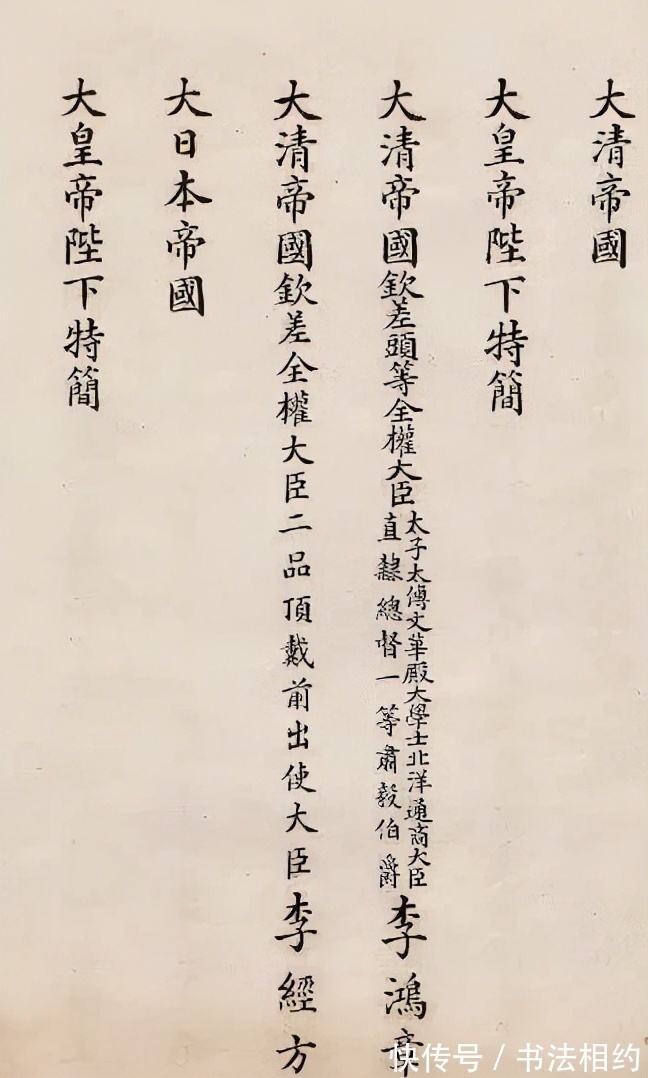 大清帝國
大皇帝陛下特簡
大清帝國欽差頭等全權大臣太子太傅文華殿大學士北洋通商大臣直隸總督一等肅毅伯爵李鴻章
大清帝國欽差全權大臣二品頂戴前出使大臣李經方
大日本帝國
大皇帝陛下特簡
快传号/书法相约